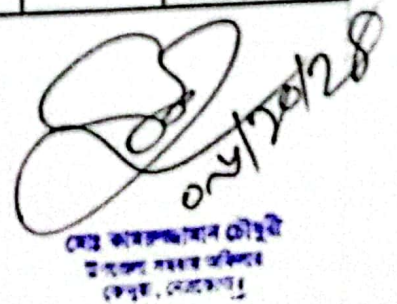 ০৮/১০/২৪
মোঃ কামরুজ্জামান চৌধুরী
উপজেলা সমবায় অফিসার
কেন্দুয়া, নেত্রকোনা।